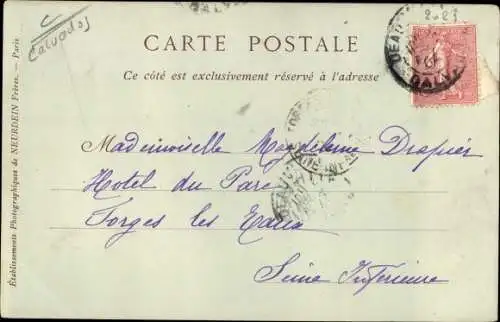 Calvados
CARTE POSTALE
Ce côté est exclusivement réservé à l'adresse
Mademoiselle Magdeleine Drapier
Hotel du Parc
Forges les Eaux
Seine Inférieure
Établissements Photographiques de NEURDEIN Frères. — Paris
DEAUV
CALVA